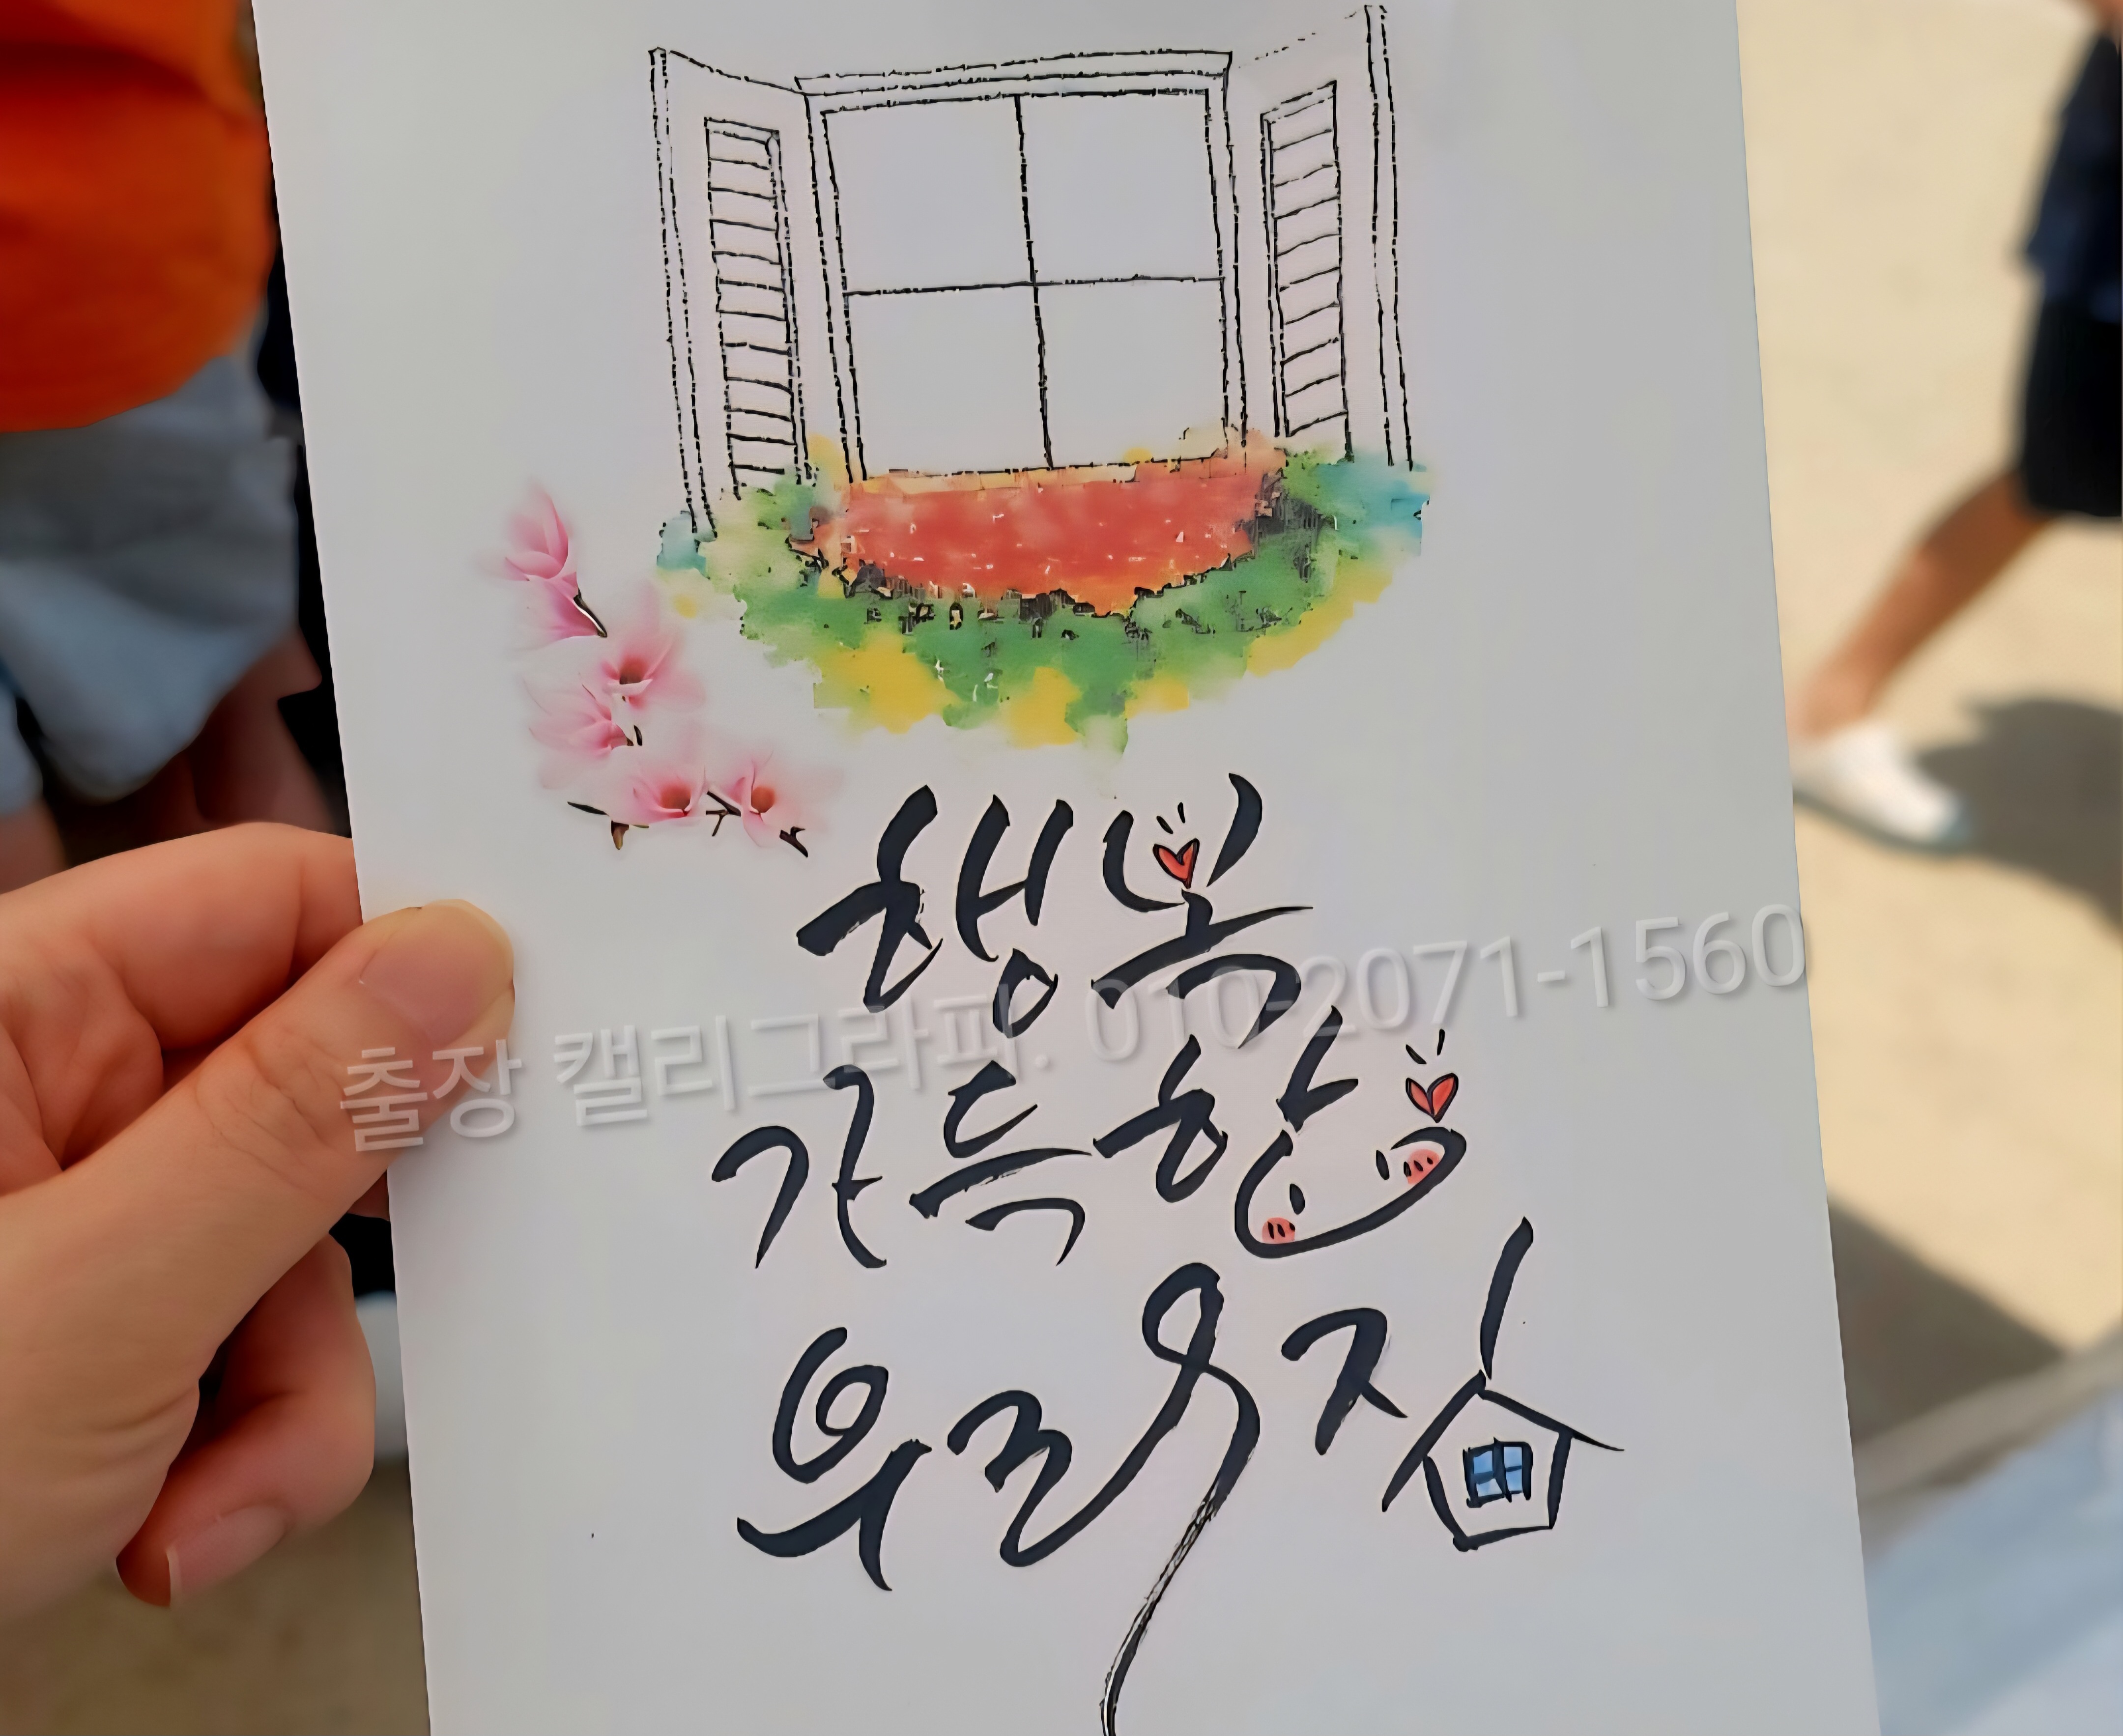 행복
출장 캘리그라피. 010-2071-1560
가득한
우리집